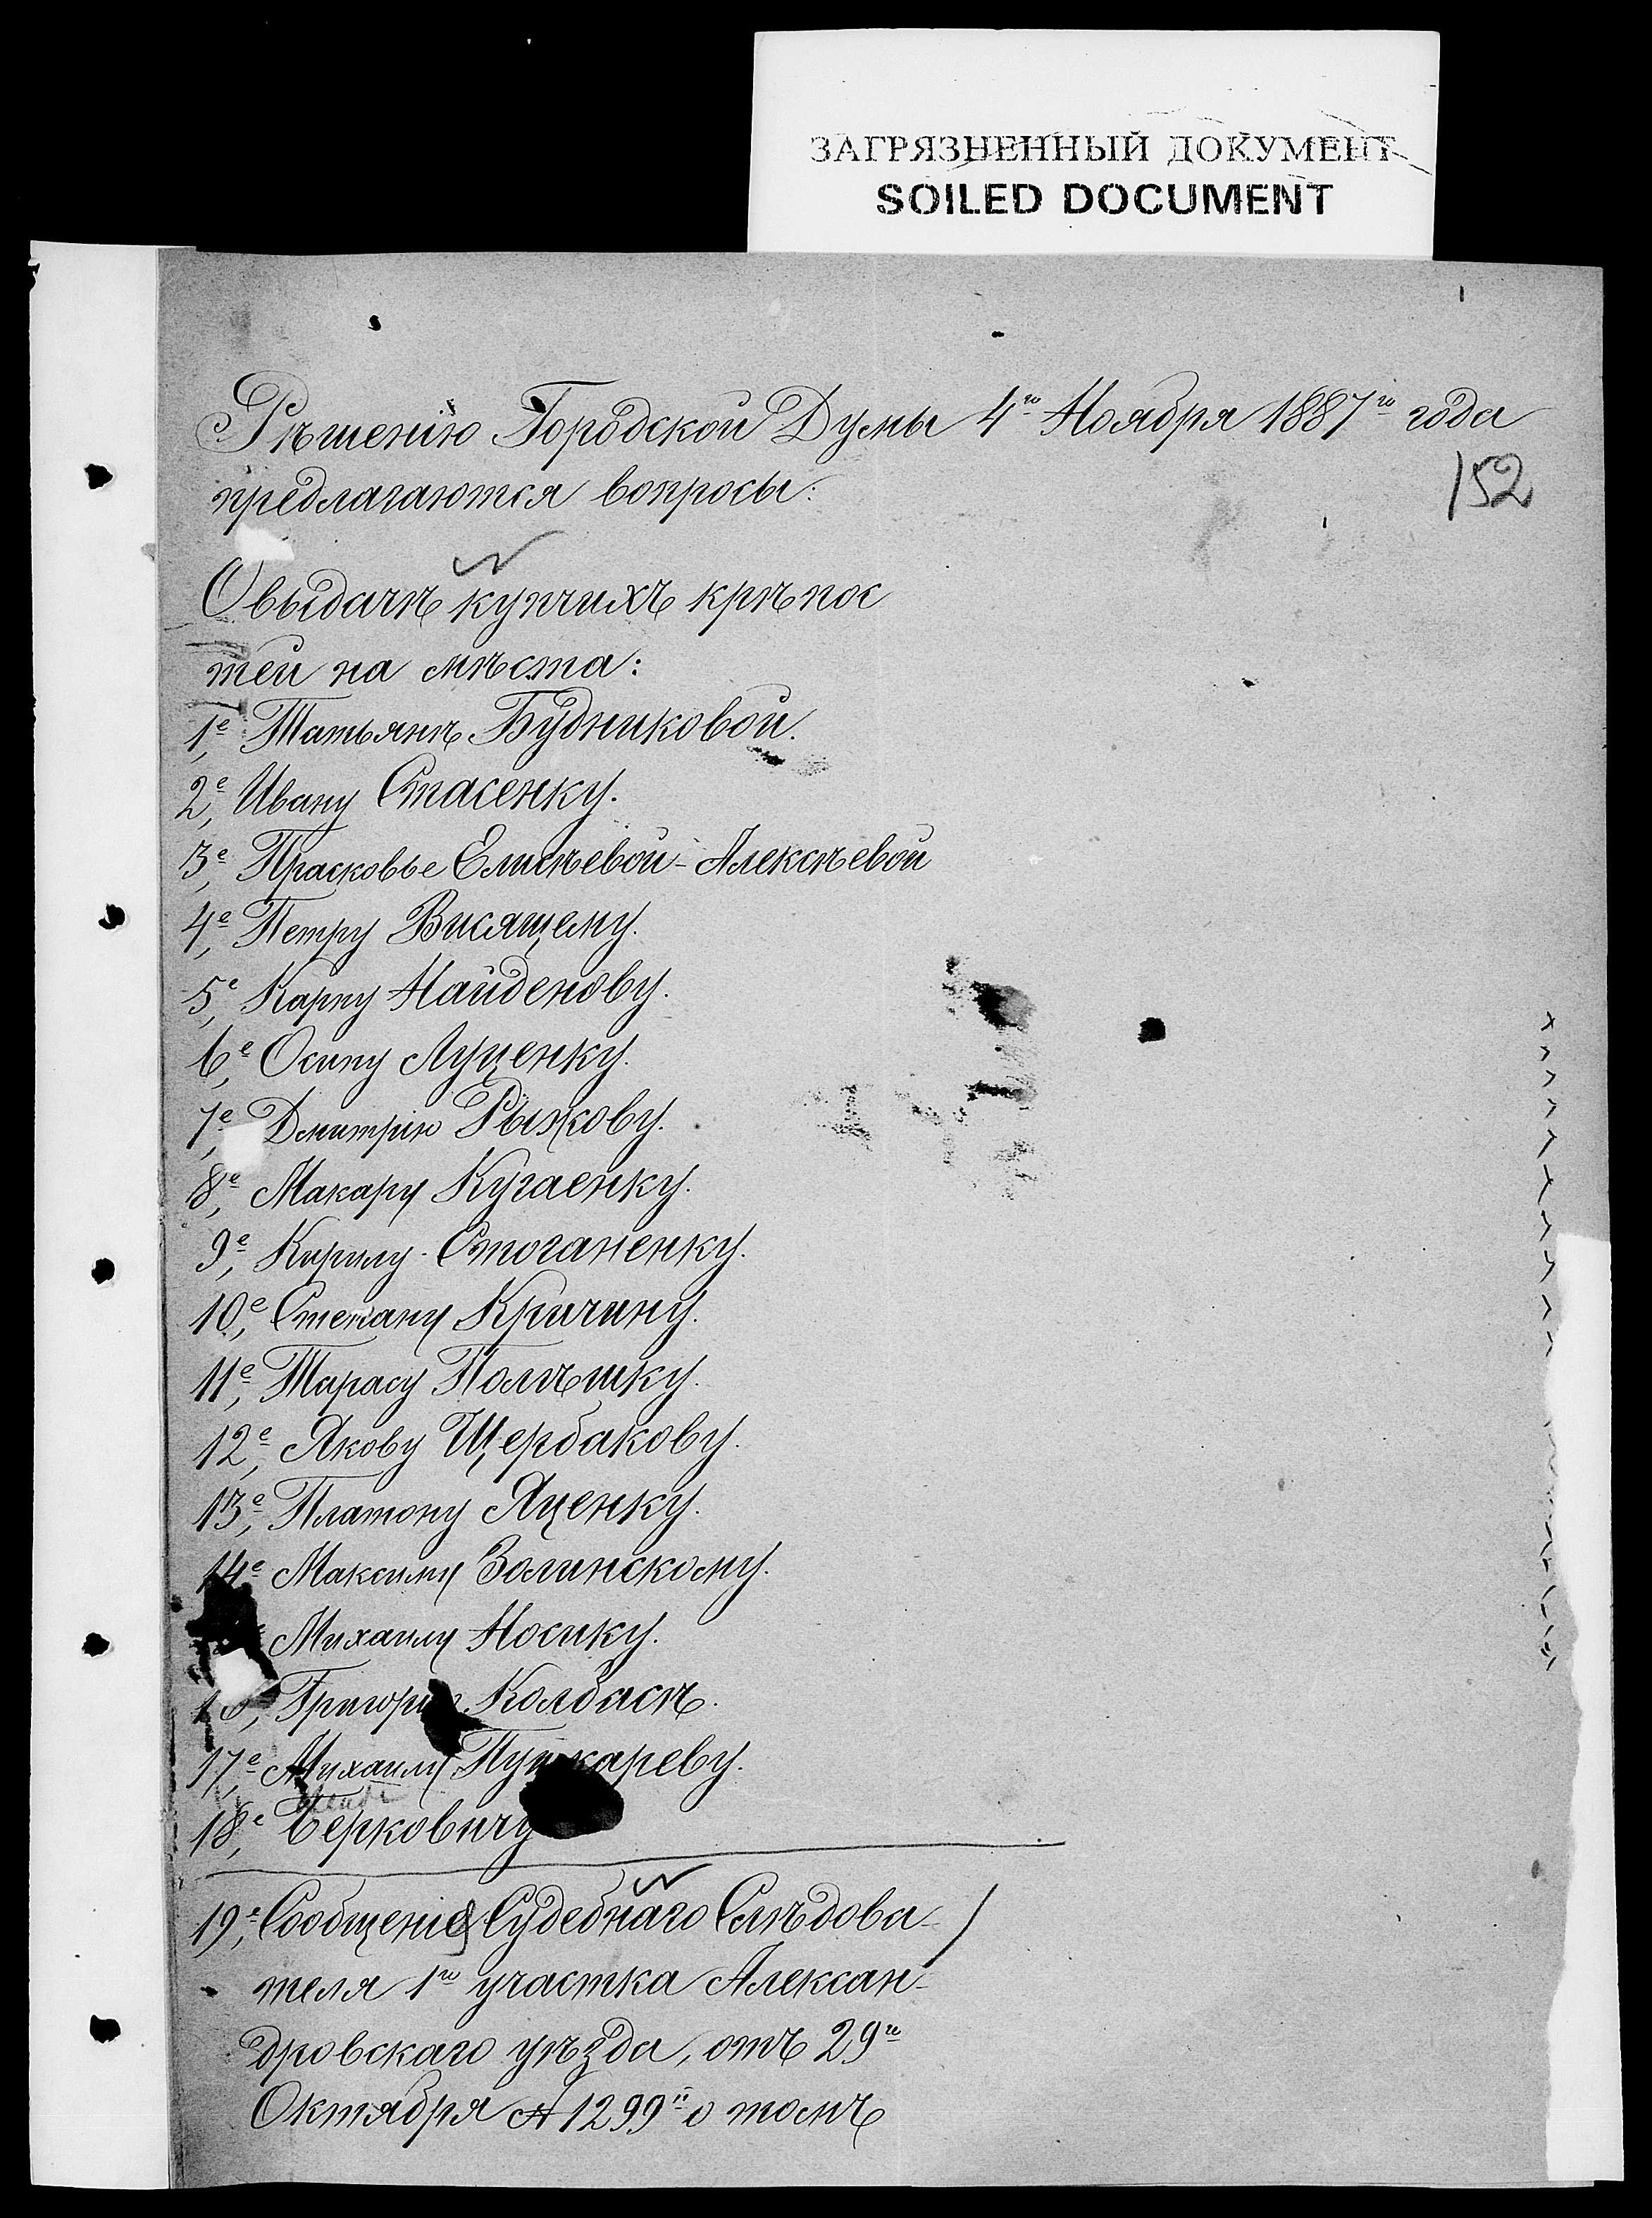 ЗАГРЯЗНЕННЫЙ ДОКУМЕНТ
SOILED DOCUMENT
Рѣшенію Городской Думы 4го Ноября 1887го года
152
предлагаются вопросы:
О выдачѣ купчихъ крѣпос
тей на мѣста:
1е, Татьянѣ Будниковой.
2е, Ивану Стасенку.
3е, Прасковье Елисѣевой-Алексѣевой
4е, Петру Висящему.
5е, Карпу Найденову.
6е, Осипу Луценку.
7е, Дмитрію Рыжкову.
8е, Макару Кугаенку.
9е, Кирилу Стоганенку.
10е, Степану Кричину.
11е, Тарасу Полѣшку.
12е, Якову Щербакову.
13е, Платону Яценку.
14е Максиму Золинскому.
Михаилу Носику.
16, Григорію Колбасѣ.
17е, Михаилу Пушкареву.
18е, Берковичу
19е, Сообщеніе Судебнаго Слѣдова-
теля 1го участка Алексан-
дровскаго уѣзда, отъ 29го
Октября № 1299й о томъ